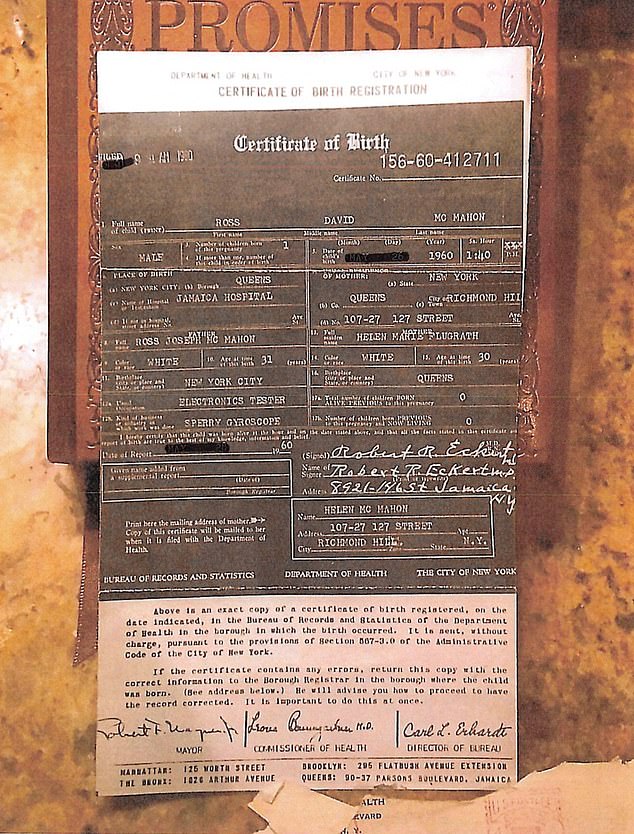 PROMISES
DEPARTMENT OF HEALTH CITY OF NEW YORK
CERTIFICATE OF BIRTH REGISTRATION
Certificate of Birth
156-60-412711
Certificate No.
1. Full name of child ROSS DAVID MC MAHON
First name Middle name Last name
Sex MALE
3. Number of children born of this pregnancy 1
4. If more than one, number of this child in order of birth
5. Date of child's birth (Month) (Day) (Year) 1960
5a. Hour 1:40 P.M.
PLACE OF BIRTH
(a) NEW YORK CITY: (b) Borough QUEENS
(c) Name of Hospital or Institution JAMAICA HOSPITAL
(d) If not in hospital,
OF MOTHER: (a) State NEW YORK
(b) Co. QUEENS City or Town RICHMOND HIL
(d) No. 107-27 127 STREET Ave. St.
FATHER
8. Full name ROSS JOSEPH MC MAHON
MOTHER
Full maiden name HELEN MARIE FLUGRATH
Color or race WHITE 10. Age at time of this birth 31 (years)
14. Color or race WHITE 15. Age at time of this birth 30 (years)
11. Birthplace (city or place and State, or country) NEW YORK CITY
16. Birthplace (city or place and State, or country) QUEENS
12a. Usual Occupation ELECTRONICS TESTER
17a. Total number of children BORN ALIVE PREVIOUS to this pregnancy 0
12b. Kind of business or industry in which work was done SPERRY GYROSCOPE
17b. Number of children born PREVIOUS to this pregnancy and NOW LIVING 0
I hereby certify that this child was born alive at the hour and on the date stated above, and that all the facts stated in this certificate and report of birth are true to the best of my knowledge, information and belief.
Date of Report 1960
(Signed) Robert R. Eckert M.D.
Name of Signer Robert R. Eckert
Address 8921-146 St Jamaica NY
Given name added from a supplemental report.
(Date of)
Borough Registrar
Print here the mailing address of mother.
Copy of this certificate will be mailed to her when it is filed with the Department of Health.
HELEN MC MAHON
Name
107-27 127 STREET
Address Apt.
RICHMOND HILL N.Y.
City Zone State
BUREAU OF RECORDS AND STATISTICS DEPARTMENT OF HEALTH THE CITY OF NEW YORK
Above is an exact copy of a certificate of birth registered, on the
date indicated, in the Bureau of Records and Statistics of the Department
of Health in the borough in which the birth occurred. It is sent, without
charge, pursuant to the provisions of Section 567-3.0 of the Administrative
Code of the City of New York.
If the certificate contains any errors, return this copy with the
correct information to the Borough Registrar in the borough where the child
was born. (See address below.) He will advise you how to proceed to have
the record corrected. It is important to do this at once.
Robert F. Wagner Jr. Leona Baumgartner M.D. Carl L. Erhardt
MAYOR COMMISSIONER OF HEALTH DIRECTOR OF BUREAU
MANHATTAN: 125 WORTH STREET BROOKLYN: 295 FLATBUSH AVENUE EXTENSION
THE BRONX: 1826 ARTHUR AVENUE QUEENS: 90-37 PARSONS BOULEVARD, JAMAICA
ALTH
EVARD
N. Y.